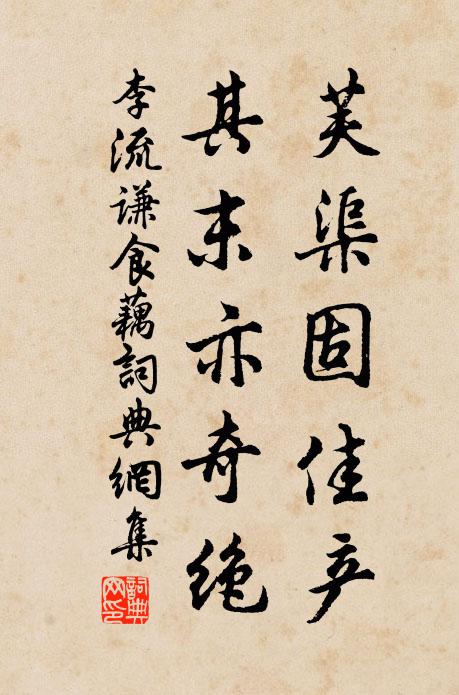 芙渠固佳产
其末亦奇绝
李流谦食藕詞典網集
詞典网印